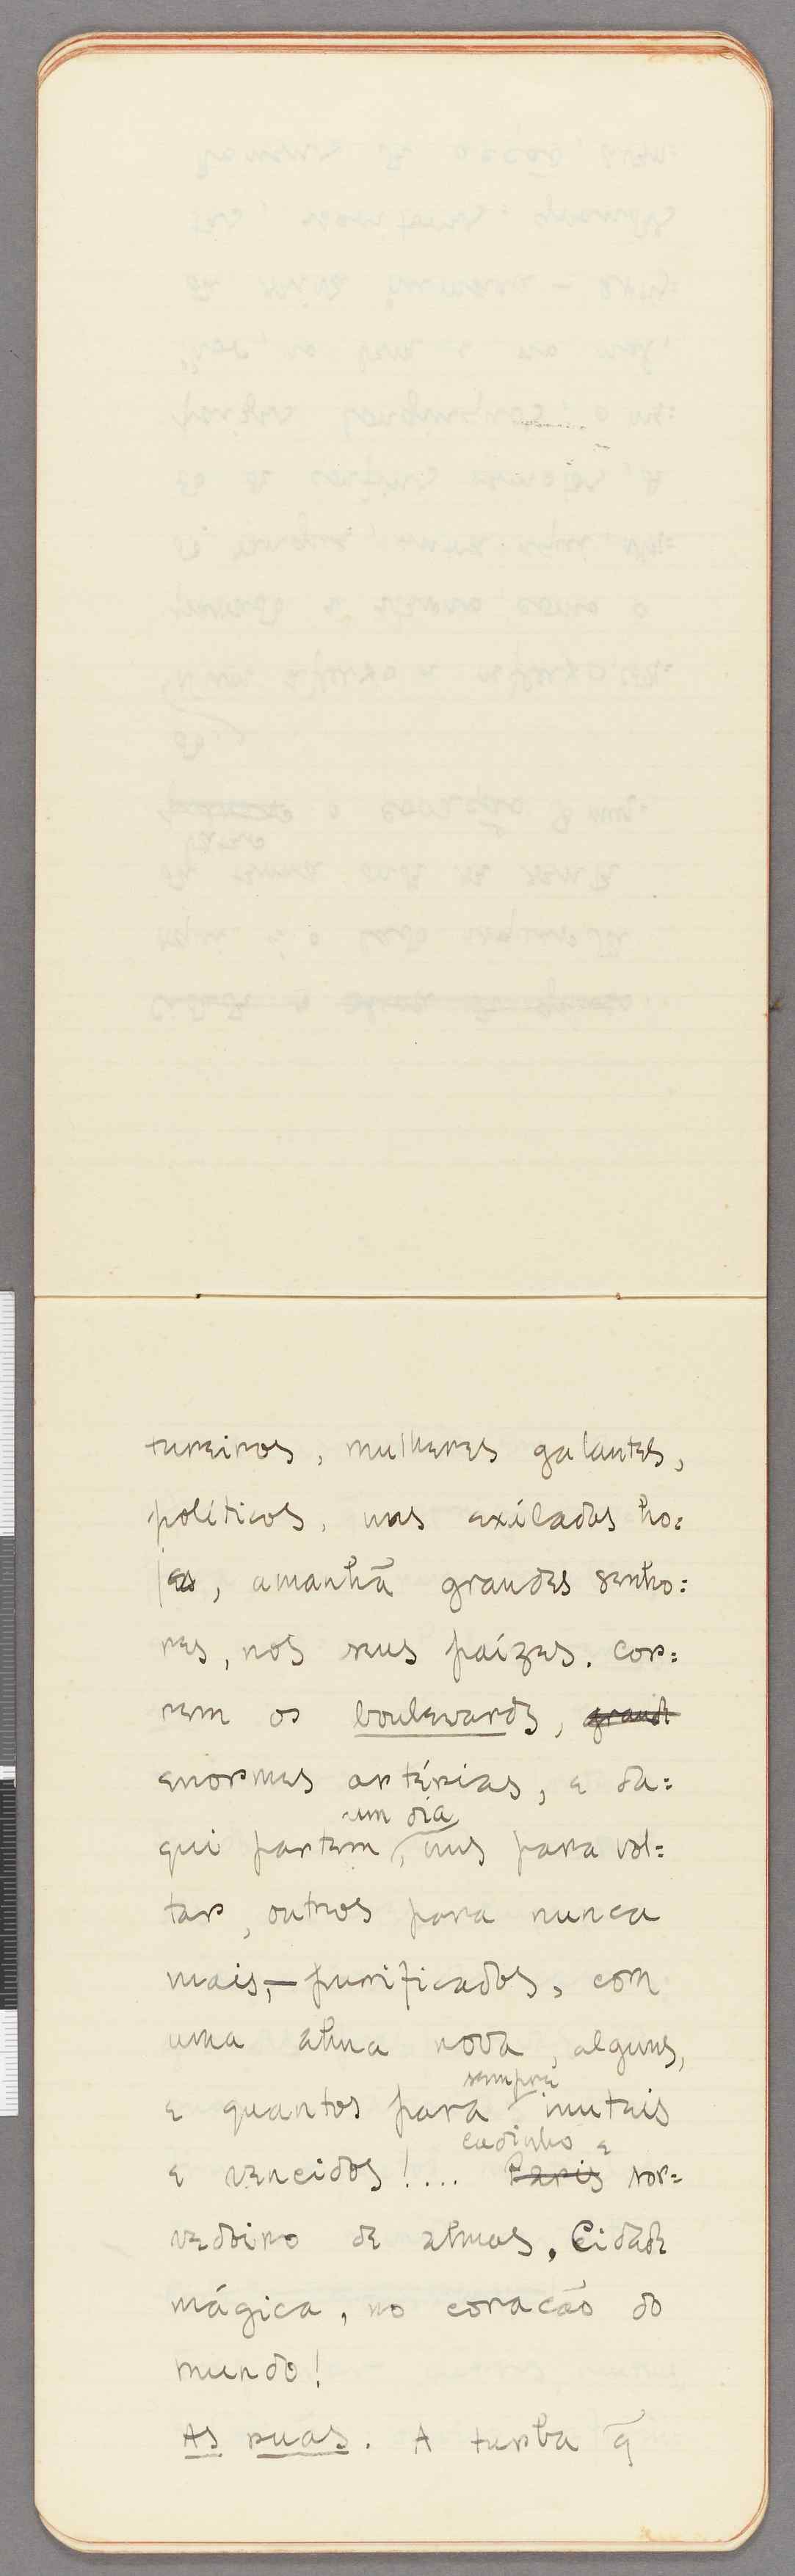 tureiros, mulheres galantes,
políticos, uns exilados ho=
je, amanhã grandes senho=
res, nos seus paízes. Cor=
rem os boulevards, grande
enormes artérias, e da=
um dia
qui partem, uns para vol=
tar, outros para nunca
mais,— purificados, com
uma alma nova, alguns,
sempre
e quantos para inuteis
cadinho e
e vencidos!... Paris sor=
vedoiro de almas. Cidade
mágica, no coracão do
mundo!
As ruas. A turba q̃